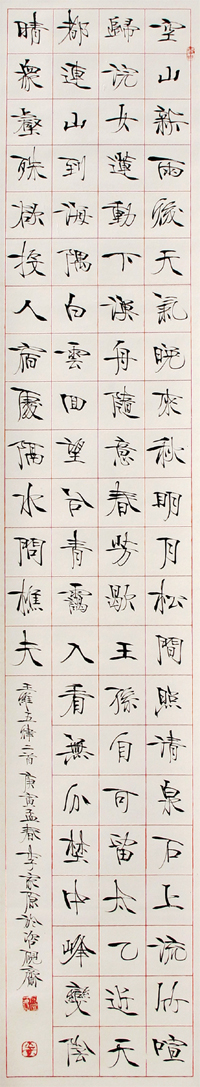 空山新雨後天氣晚來秋明月松間照清泉石上流竹喧
歸浣女蓮動下漁舟隨意春芳歇王孫自可留太乙近天
都連山到海隅白雲回望合青靄入看無分埜中峰變陰
晴衆壑殊欲投人宿處隔水問樵夫
王維五律二首庚寅孟春李家原於硯齋